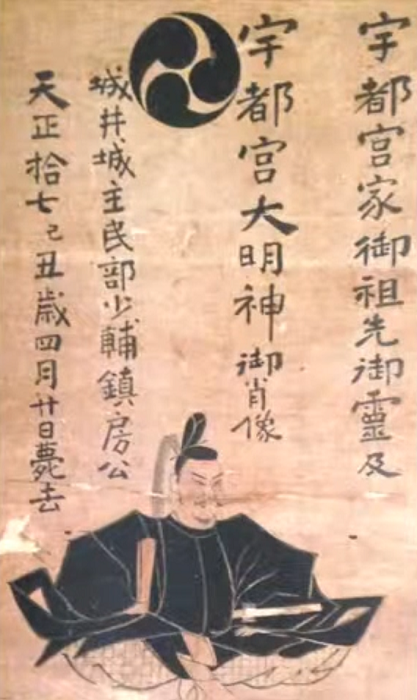 宇都宮家御祖先御霊及
宇都宮大明神御肖像
城井城主民部少輔鎮房公
天正拾七己丑歳四月廿日薨去